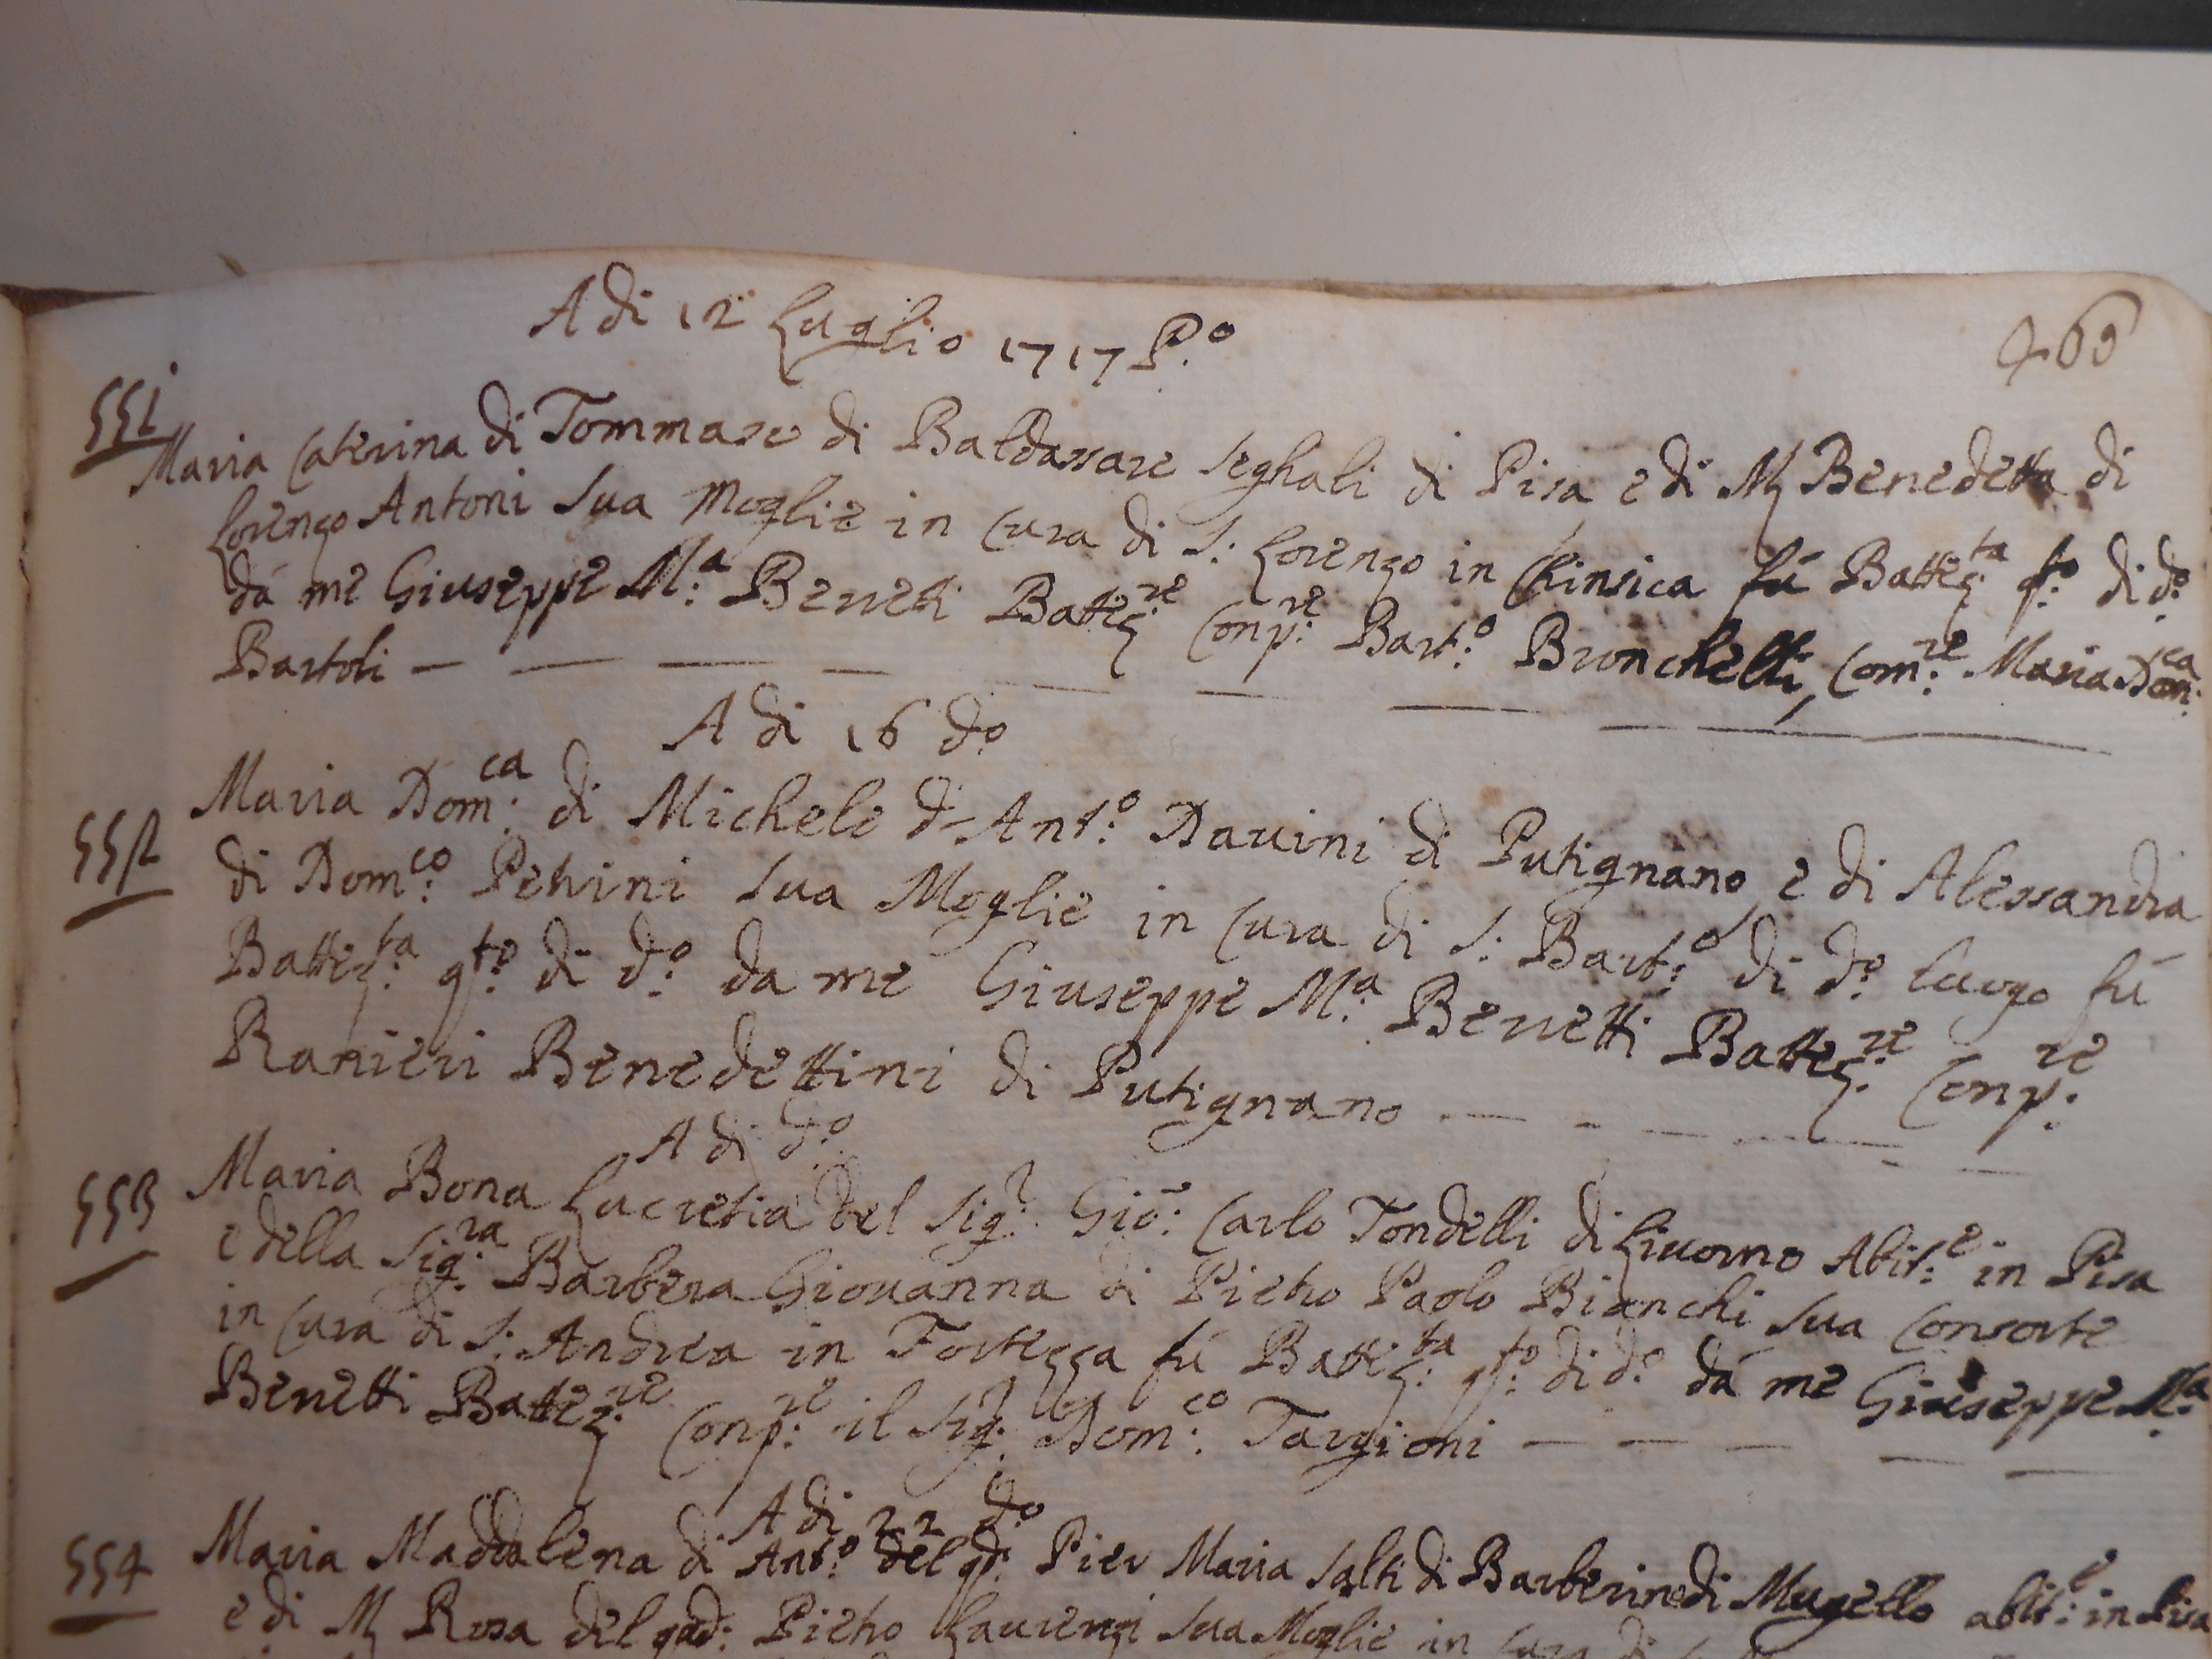 A di 12 Luglio 1717 P.o
551
Maria Caterina di Tommaso di Baldassare Seghali di Pisa e di M Benedetta di
Lorenzo Antoni sua Moglie in Cura di S: Lorenzo in Chinsica fù Battez:ta q:to di d:o
dà me Giuseppe M:a Benetti Battez:re Comp:re Bart:o Bronchelli, Com:re Maria Dom:ca
Bartoli
A di 16 d:o
552 Maria Dom:ca di Michele d Ant:o Davini di Putignano e di Alessandra
di Dom:co Petrini sua Moglie in Cura di S: Bart:o di d:o luogo fù
Battez:ta q:to di d:o da me Giuseppe M:a Benetti Battez:re Comp:re
Ranieri Benedettini di Putignano
A di d:o
553 Maria Bona Lucretia del Sig:r Gio: Carlo Tondelli di Livorno Abit:e in Pisa
e della Sig:ra Barbera Giovanna di Pietro Paolo Bianchi sua Consorte
in Cura di S: Andrea in Fortezza fù Battez:ta q:to di d:o dà me Giuseppe M:a
Benetti Battez:re Comp:re il Sig:r Dom:co Targioni
A di 22 d:o
554 Maria Maddalena di Ant:o del qd: Pier Maria Salti di Barberino di Mugello abit:e in Pisa
e di M Rosa del qud: Pietro Laurenzi sua Moglie in Cura di